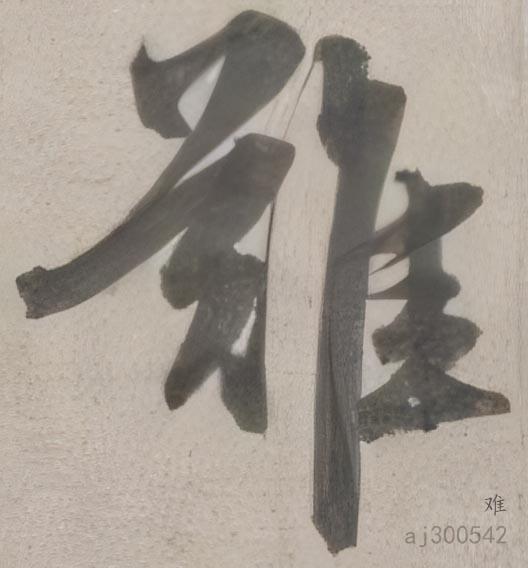 难
难
aj300542